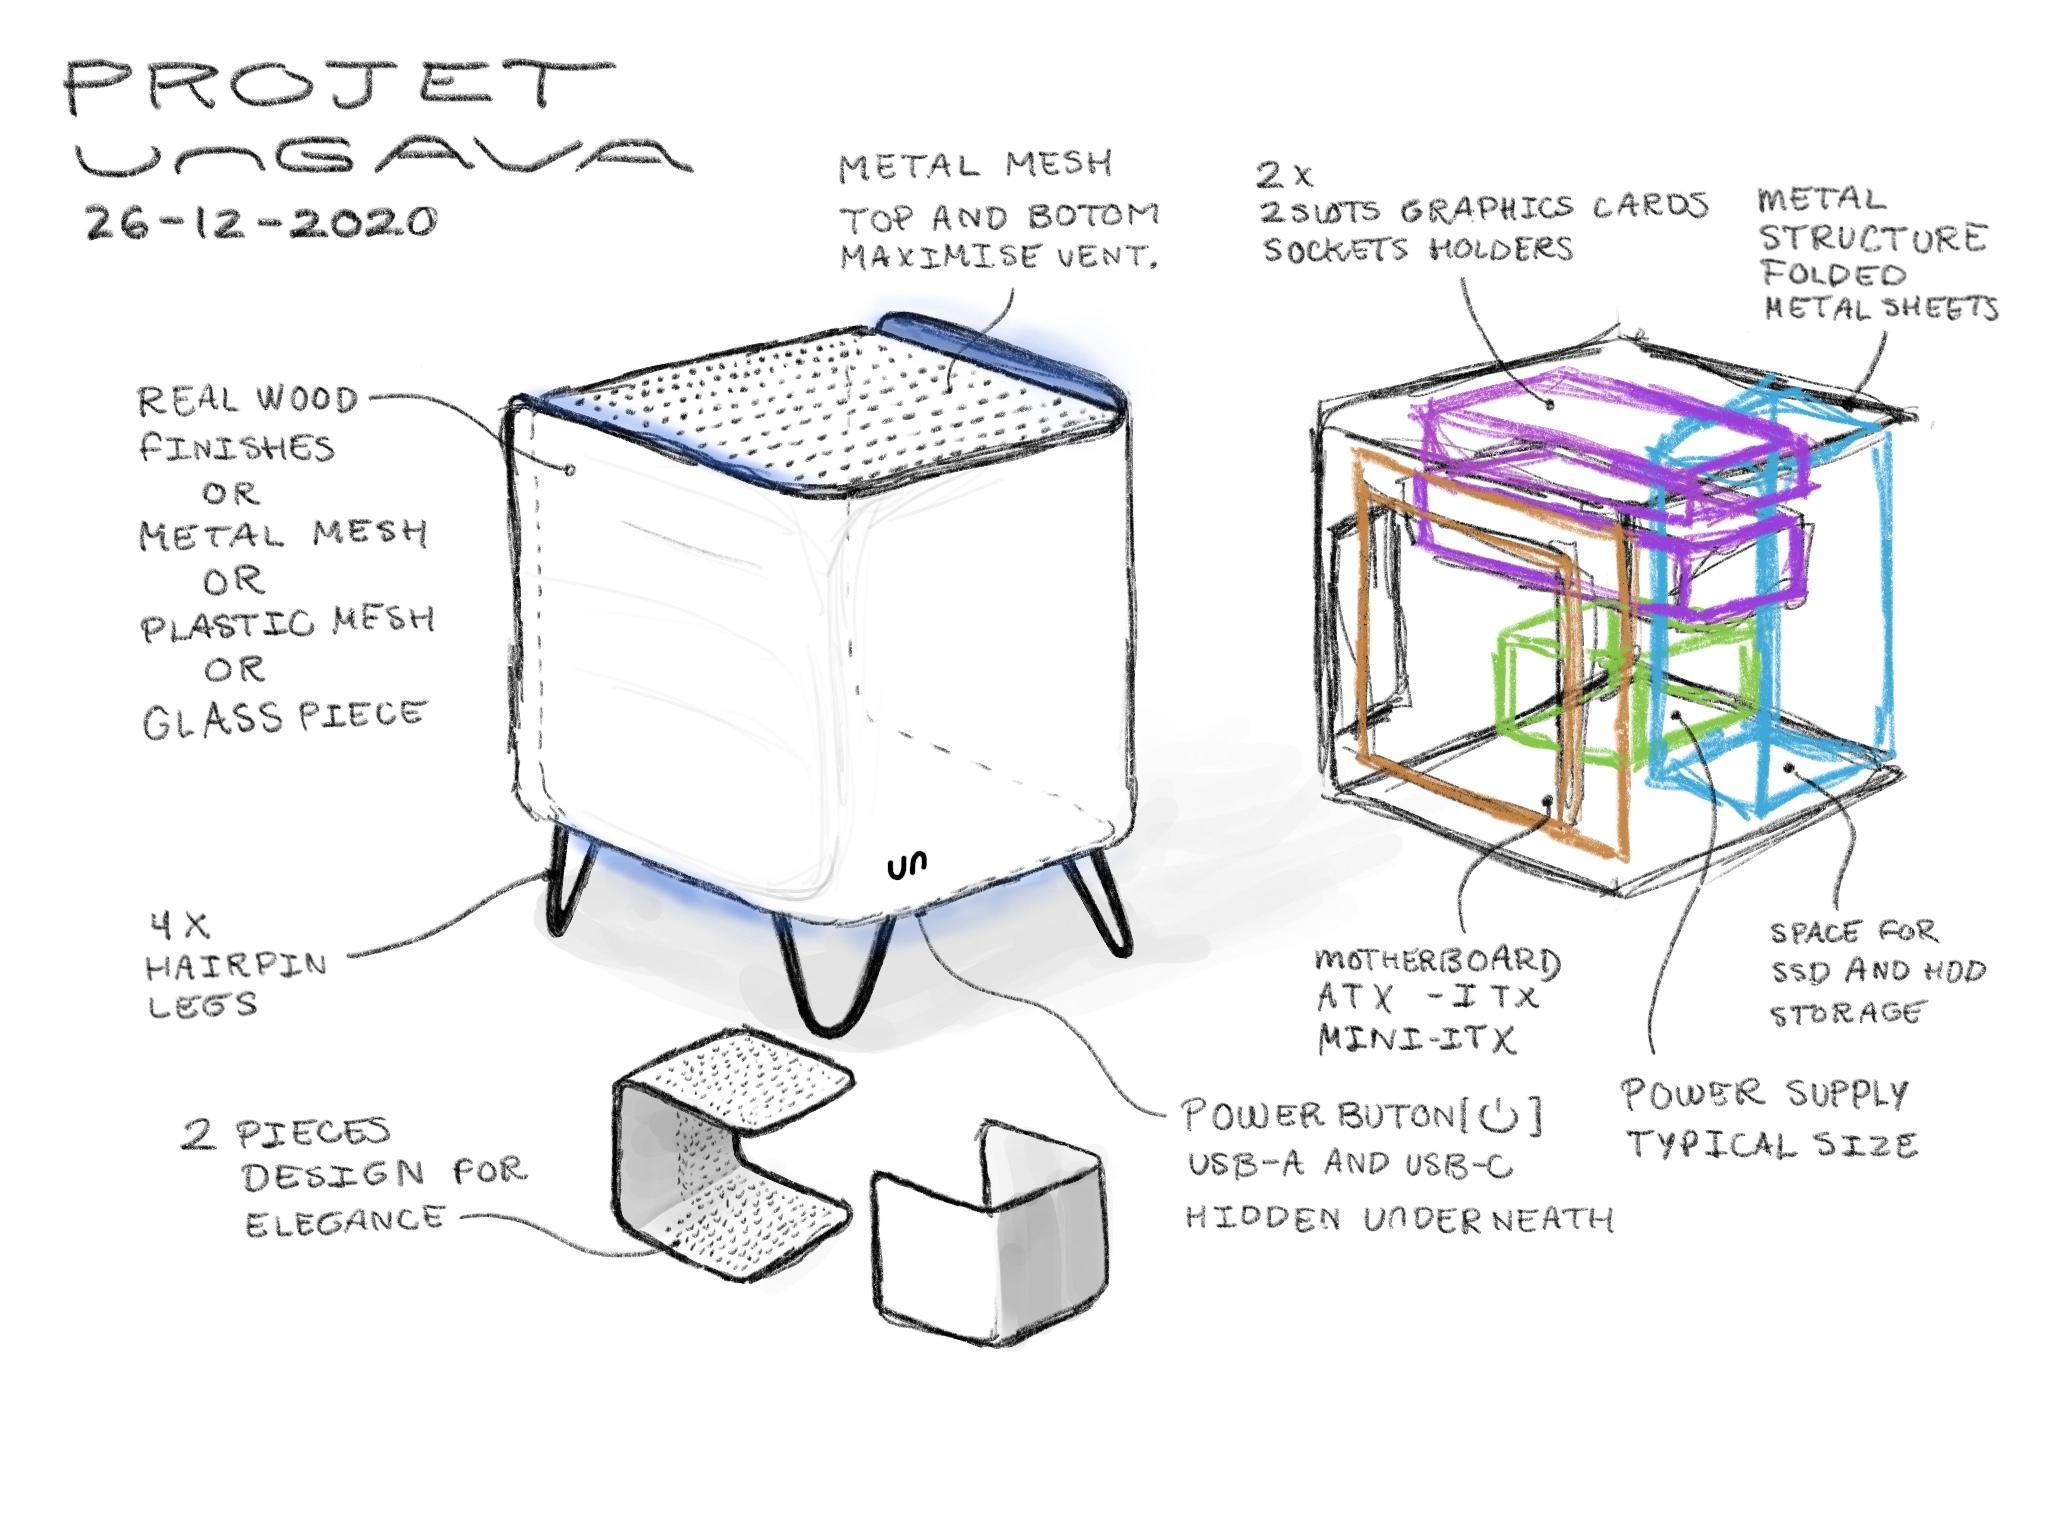 PROJET
UNGAVA
26-12-2020
METAL MESH
TOP AND BOTOM
MAXIMISE VENT.
2x
2 SLOTS GRAPHICS CARDS
SOCKETS HOLDERS
METAL
STRUCTURE
FOLDED
METAL SHEETS
REAL WOOD
FINISHES
OR
METAL MESH
OR
PLASTIC MESH
OR
GLASS PIECE
un
4X
HAIRPIN
LEGS
MOTHERBOARD
ATX - ITX
MINI-ITX
SPACE FOR
SSD AND HDD
STORAGE
POWER SUPPLY
TYPICAL SIZE
2 PIECES
DESIGN FOR
ELEGANCE
POWER BUTON [⏻]
USB-A AND USB-C
HIDDEN UNDERNEATH